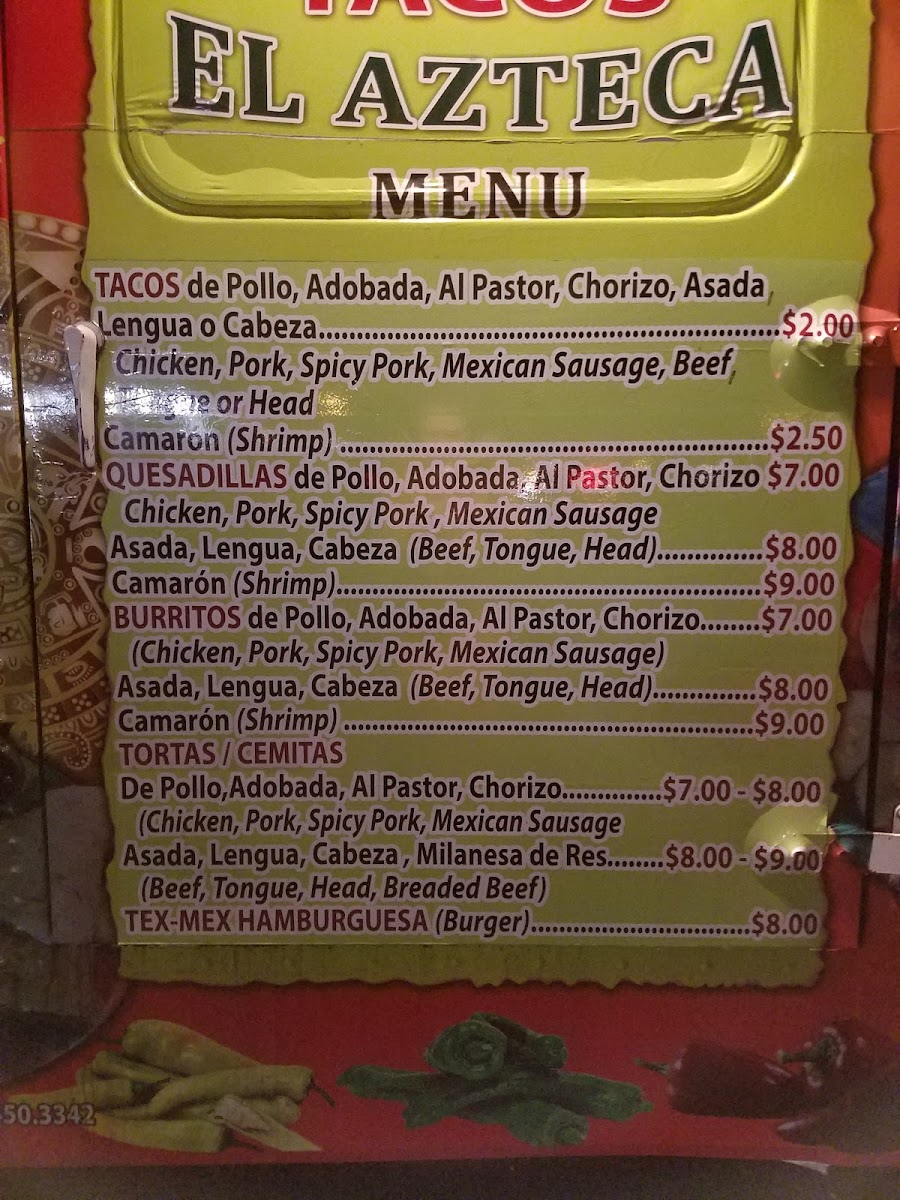 TACOS
EL AZTECA
MENU
TACOS de Pollo, Adobada, Al Pastor, Chorizo, Asada,
Lengua o Cabeza.......................................................$2.00
Chicken, Pork, Spicy Pork, Mexican Sausage, Beef,
or Head
Camarón (Shrimp).......................................................$2.50
QUESADILLAS de Pollo, Adobada, Al Pastor, Chorizo $7.00
Chicken, Pork, Spicy Pork, Mexican Sausage
Asada, Lengua, Cabeza (Beef, Tongue, Head)...............$8.00
Camarón (Shrimp).......................................................$9.00
BURRITOS de Pollo, Adobada, Al Pastor, Chorizo........$7.00
(Chicken, Pork, Spicy Pork, Mexican Sausage)
Asada, Lengua, Cabeza (Beef, Tongue, Head)...............$8.00
Camarón (Shrimp).......................................................$9.00
TORTAS / CEMITAS
De Pollo,Adobada, Al Pastor, Chorizo..............$7.00 - $8.00
(Chicken, Pork, Spicy Pork, Mexican Sausage
Asada, Lengua, Cabeza, Milanesa de Res........$8.00 - $9.00
(Beef, Tongue, Head, Breaded Beef)
TEX-MEX HAMBURGUESA (Burger)...............................$8.00
50.3342